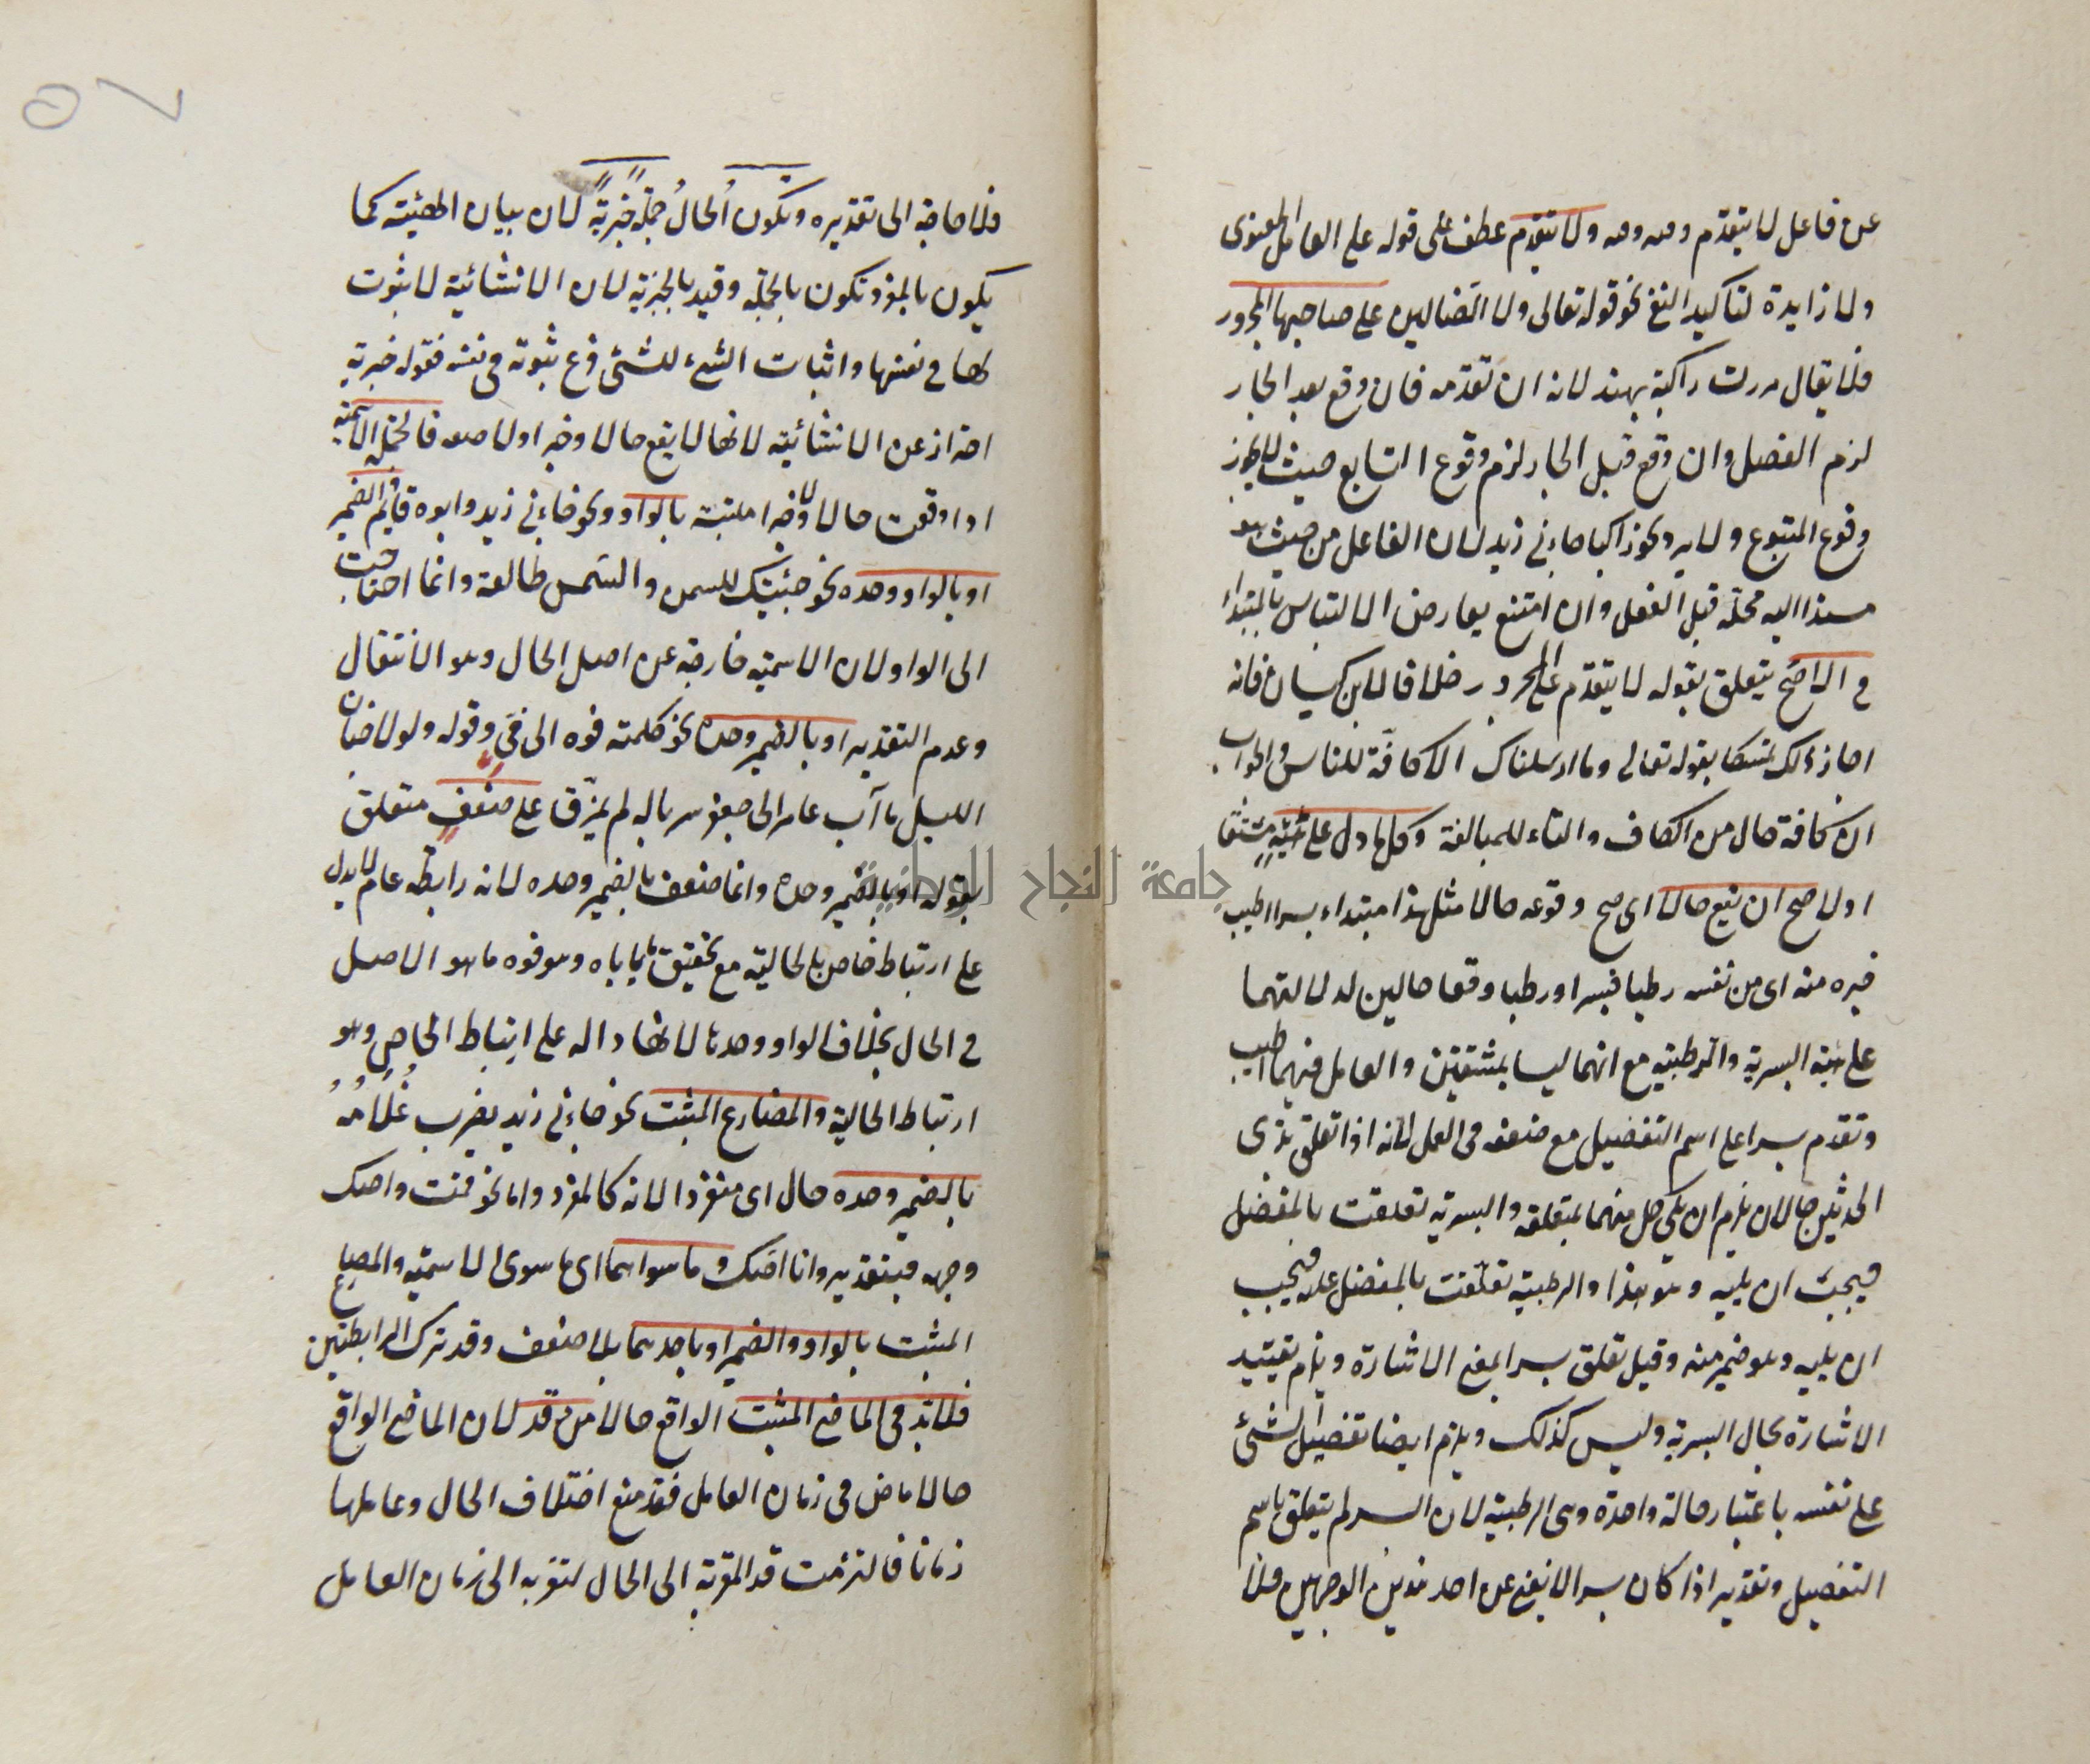 ٥٧
عن فاعل لا يتقدم وصه وصه ولا يتقدم عطف على قوله على العامل المعنوى
ولا زايدة لتاكيد النفى نحو قوله تعالى ولا الضالين على صاحبها المجرور
فلا يقال مررت راكبة بهند لانه ان تقدمه فان وقع بعد الجار
لزم الفصل وان وقع قبل الجار لزم وقوع التابع حيث لا يجوز
وقوع المتبوع ولا يرد نحو راكبا جاءنى زيد لان الفاعل من حيث هو
مسندا اليه محله قبل الفعل وان امتنع بعارض الالتباس بالمبتداء
فى الاصح يتعلق بقوله لا يتقدم على المجرور خلافا لابن كيسان فانه
اجاز ذلك تمسكا بقوله تعالى وما ارسلناك الا كافة للناس والجواب
ان كافة حال من الكاف والتاء للمبالغة وكل ما دل على هيئة مشتقا
اولا صح ان يقع حالا اى صح وقوعه حالا مثل هذا مبتداء بسرا اطيب
خبره منه اى من نفسه رطبا فبسرا ورطبا وقعا حالين لدلالتهما
على هيئة البسرية والرطبية مع انهما ليسا بمشتقين والعامل فيهما اطيب
وتقدم بسرا على اسم التفضيل مع ضعفه فى العمل لانه اذا تعلق بذى
الحدثين حالان يلزم ان يلى كل منهما بمتعلقه والبسرية تعلقت بالمفضل
فيجب ان يليه وهو هذا والرطبية تعلقت بالمفضل عليه فيجب
ان يليه وهو ضمير منه وقيل تعلق بسرا بمعنى الاشارة ويلزم تقييد
الاشارة بحال البسرية وليس كذلك ويلزم ايضا تفضيل الشئ
على نفسه باعتبار حالة واحدة وهى الرطبية لان البسر لم يتعلق باسم
التفضيل وتقدير اذا كان بسرا لا يغنى عن احد هذين الوجهين فلا
فلا حاجة الى تقديره وتكون الحال جملة خبرية لان بيان الهيئية كما
يكون بالمفرد تكون بالجملة وقيد بالخبرية لان الانشائية لا ثبوت
لها فى نفسها واثبات الشئ للشئ فرع ثبوته فى نفسه فقوله خبرية
احتراز عن الانشائية لانها لا يقع حالا وخبرا ولا صفه فالجملة الاسمية
اذا وقعت حالا لا خبرا ملتبسة بالواو ونحو جاءنى زيد وابوه قائم والضمير
او بالواو وحده نحو جئتك والشمس طالعة وانما احتاجت
الى الواو لان الاسمية خارجة عن اصل الحال وهو الانتقال
وعدم التقدير او بالضمير وحده نحو كلمته فوه الى فى وقوله ولولا جنان
الليل ما آب عامر الى جعفر سرباله لم يمزق على ضعف متعلق
بقوله او بالضمير وحده وانما ضعف بالضمير وحده لانه رابطة عام لا يدل
على ارتباط خاص بالحالية مع تحقيق ما ياباه وهو فوه ما هو الاصل
فى الحال بخلاف الواو وحدها لانها داله على ارتباط الخاص وهو
ارتباط الحالية والمضارع المثبت نحو جاءنى زيد يضرب غلامه
بالضمير وحده حال اى منفردا لانه كالمفرد واما نحو قمت واصك
وجهه فبتقدير وانا اصك وما سواهما اى ما سوى الاسمية والمضارع
المثبت بالواو والضمير او باحدهما بلا ضعف وقد ترك الرابطتين
فلا بد فى الماضى المثبت الواقع حالا من قد لان الماضى الواقع
حالا ماض فى زمان العامل فقد منع اختلاف الحال وعاملها
زمانا فالتزمت قد المقربة الى الحال لتقربه الى زمان العامل
جامعة النجاح الوطنية